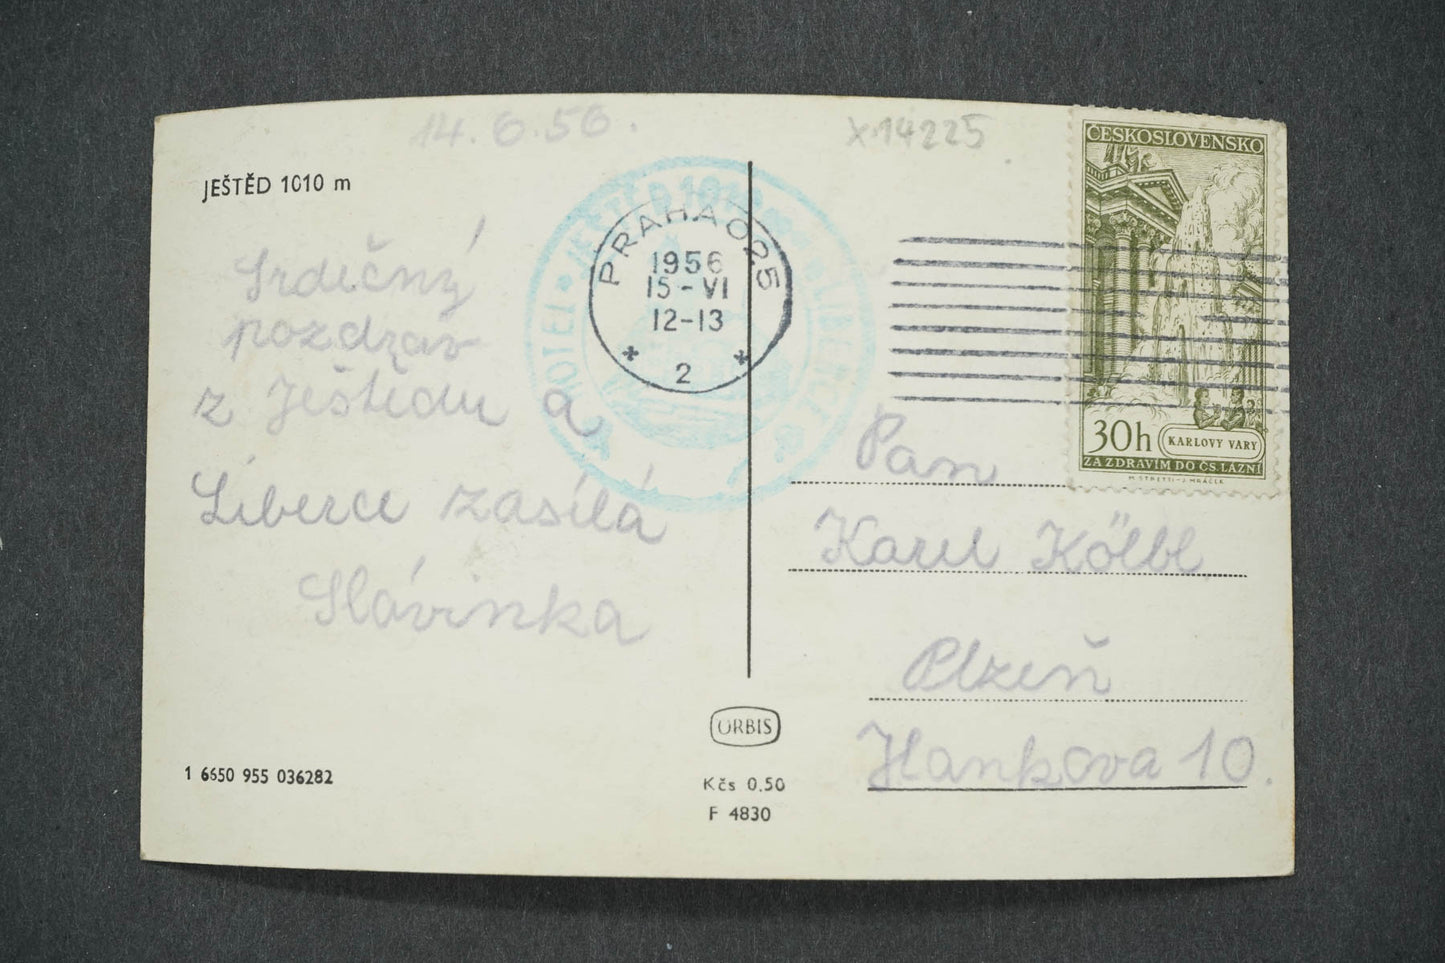 14.6.56.
X14225
JEŠTĚD 1010 m
Srdečný
pozdrav
z Ještědu a
Liberce zasílá
Slávinka
HOTEL • JEŠTĚD 1010 m
PRAHA 025
1956
15-VI
12-13
* 2 *
ČESKOSLOVENSKO
30h
KARLOVY VARY
ZA ZDRAVÍM DO ČS. LÁZNÍ
M. STRETTI - J. MRÁČEK
Pan
Karel Kölbl
Plzeň
Hankova 10.
ORBIS
1 6650 955 036282
Kčs 0.50
F 4830